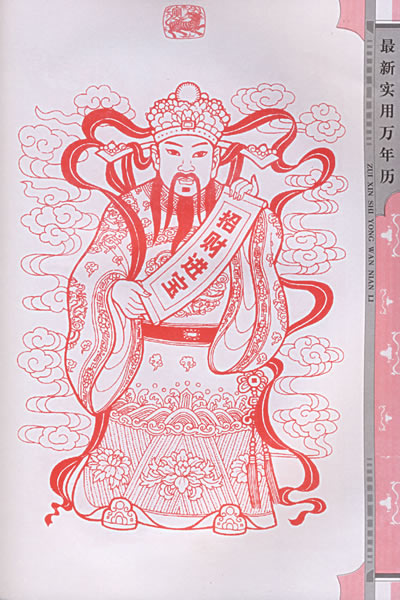 招财进宝
最新实用万年历
ZUI XIN SHI YONG WAN NIAN LI